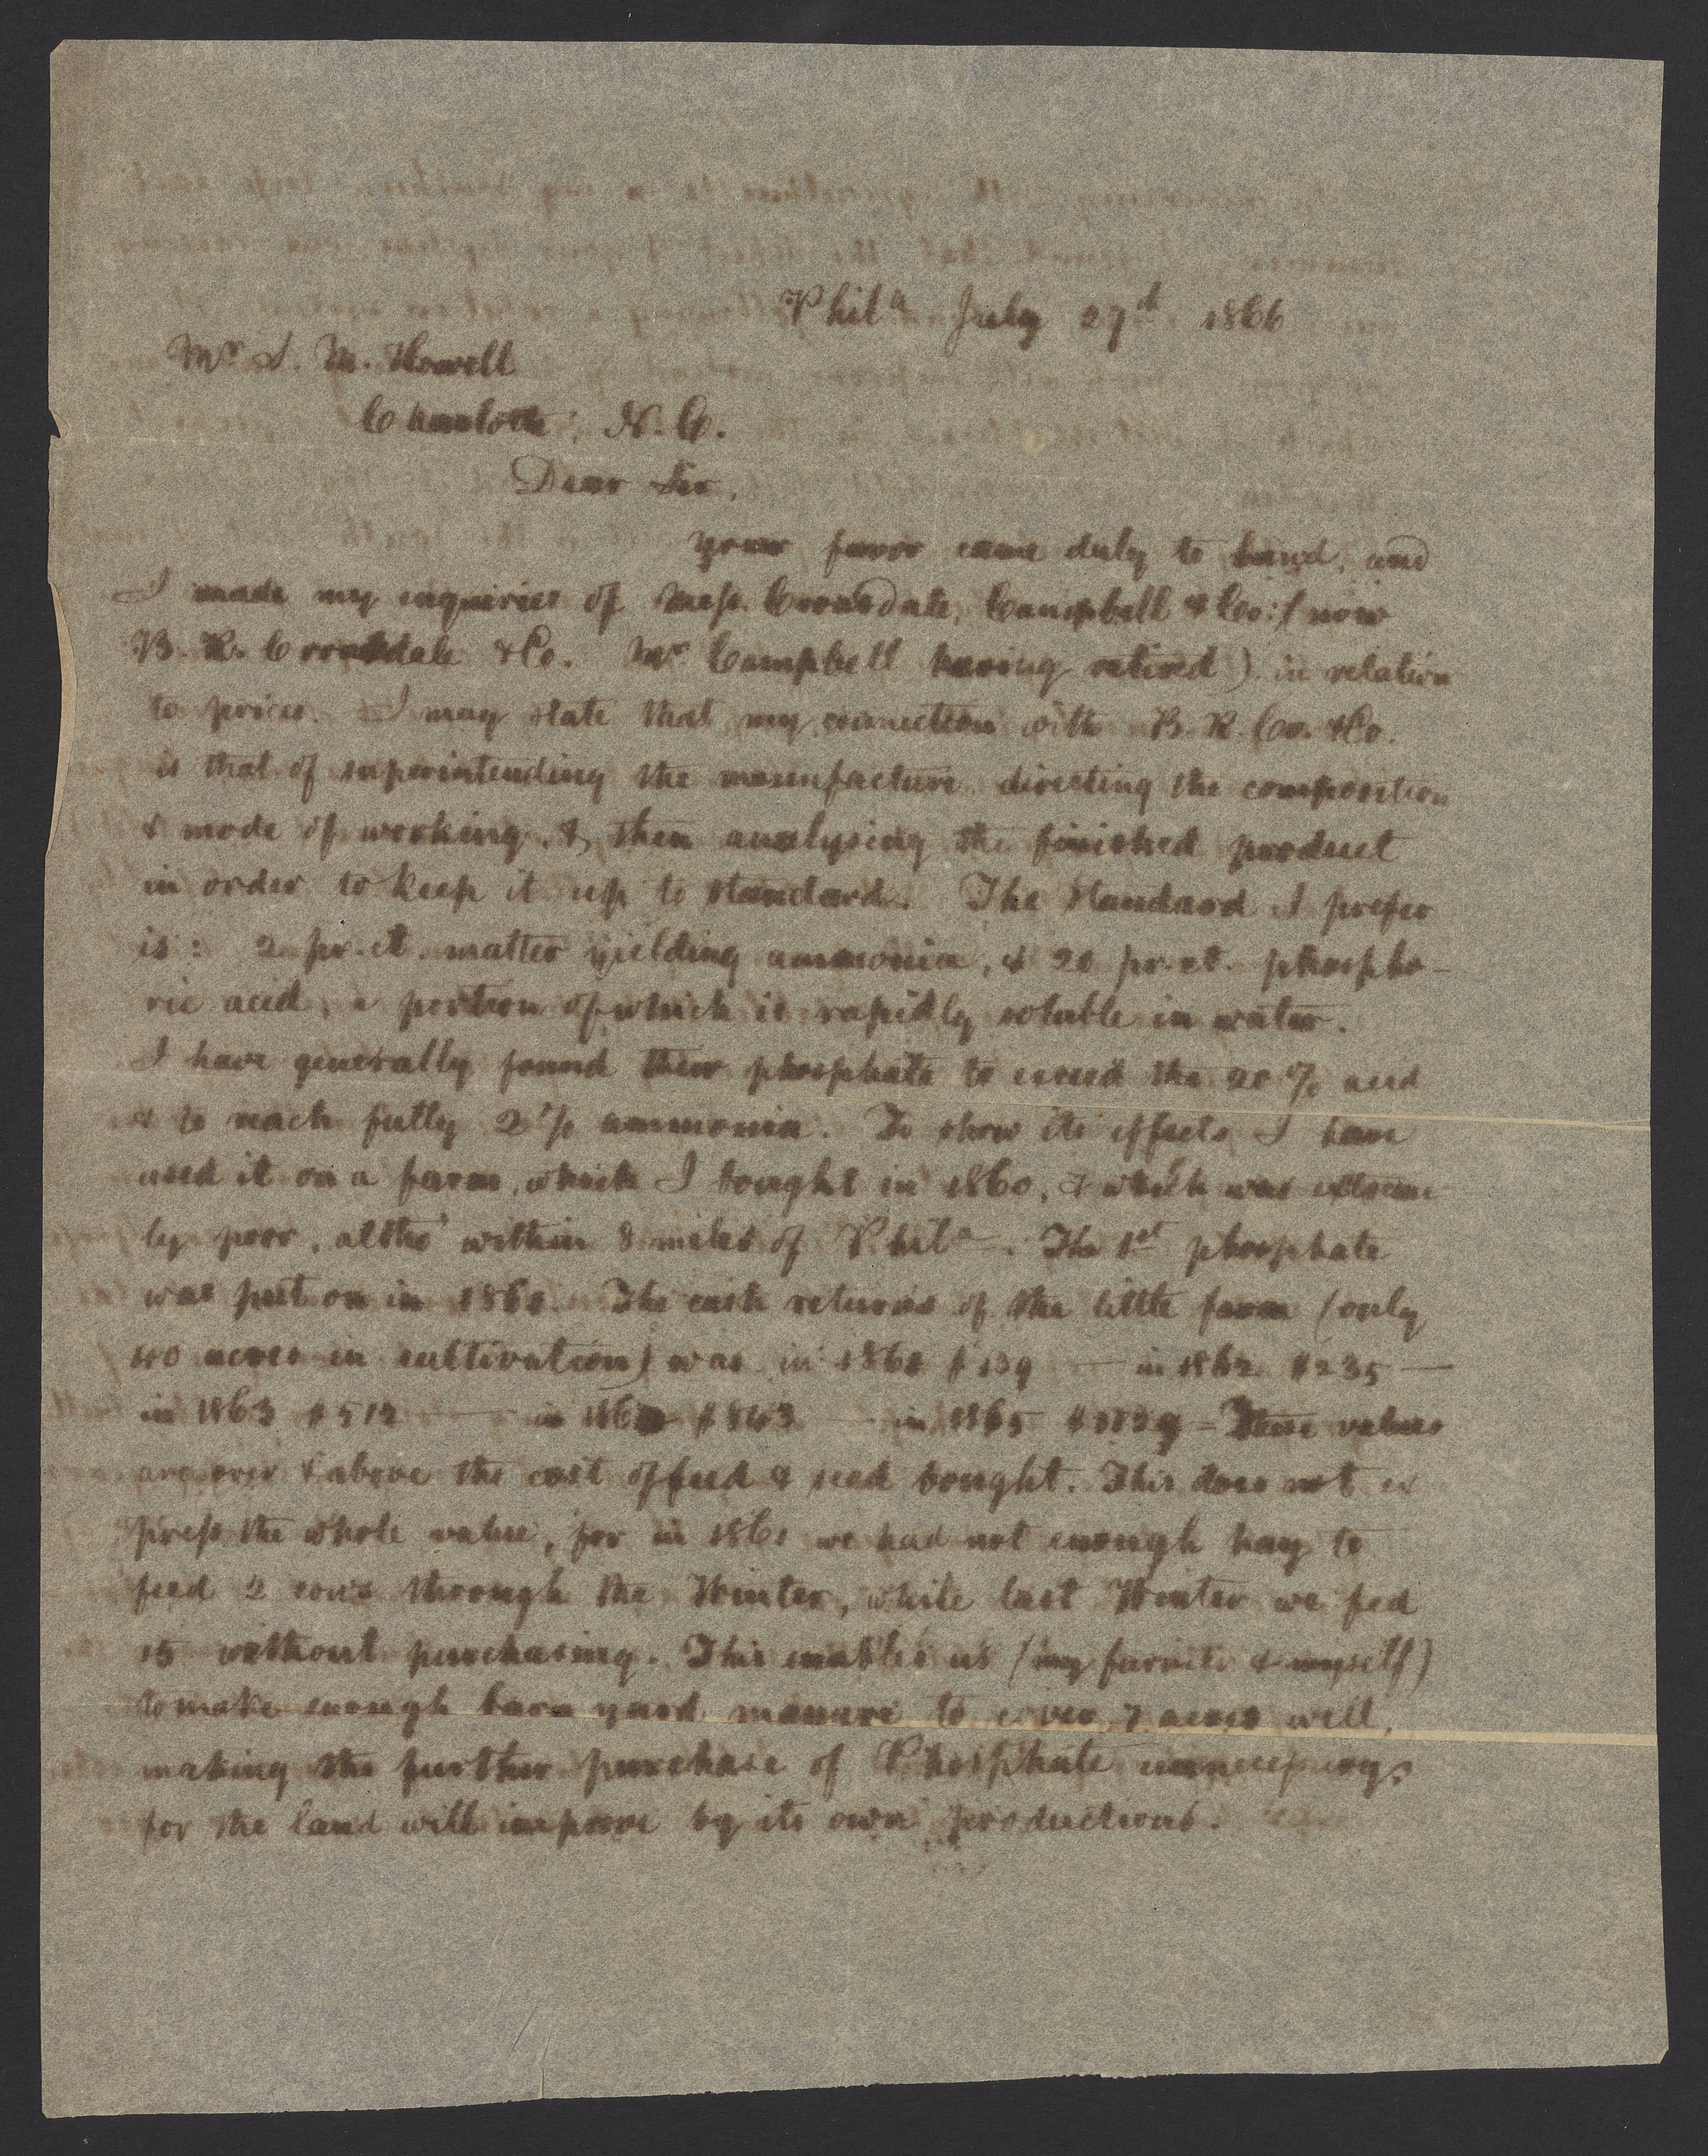 Phila July 27th 1866
Mr S. M. Howell
Charlotte, N. C.
Dear Sir,
Your favor came duly to hand, and
I made my inquiries of Mess. Croasdale, Campbell & Co: (now
B. R. Croasdale & Co. Mr Campbell having retired) in relation
to prices. I may state that my connection with B. R. Co. & Co.
is that of superintending the manufacture, directing the composition
& mode of working, & then analysing the finished product
in order to keep it up to standard. The standard I prefer
is: 2 pr. ct. matter yielding ammonia, & 20 pr. ct. phospho-
ric acid, a portion of which is rapidly soluble in water.
I have generally found their phosphate to exceed the 20 % acid
& to reach fully 2 % ammonia. To show its effects I have
used it on a farm, which I bought in 1860, & which was extreme
ly poor, altho' within 8 miles of Phila. The 1st phosphate
was put on in 1861. The cash returns of the little farm (only
40 acres in cultivation) was in 1861 $139 — in 1862 $235 —
in 1863 $512 — in $843 — in 1865 — These values
are over & above the cost of feed & seed bought. This does not ex
press the whole value, for in 1861 we had not enough hay to
feed 2 cows through the Winter, while last Winter we fed
15 without purchasing. This enables us (my farmer & myself)
to make enough barn yard manure to cover 7 acres well,
making the further purchase of Phosphate unnecessary,
for the land will improve by its own productions.